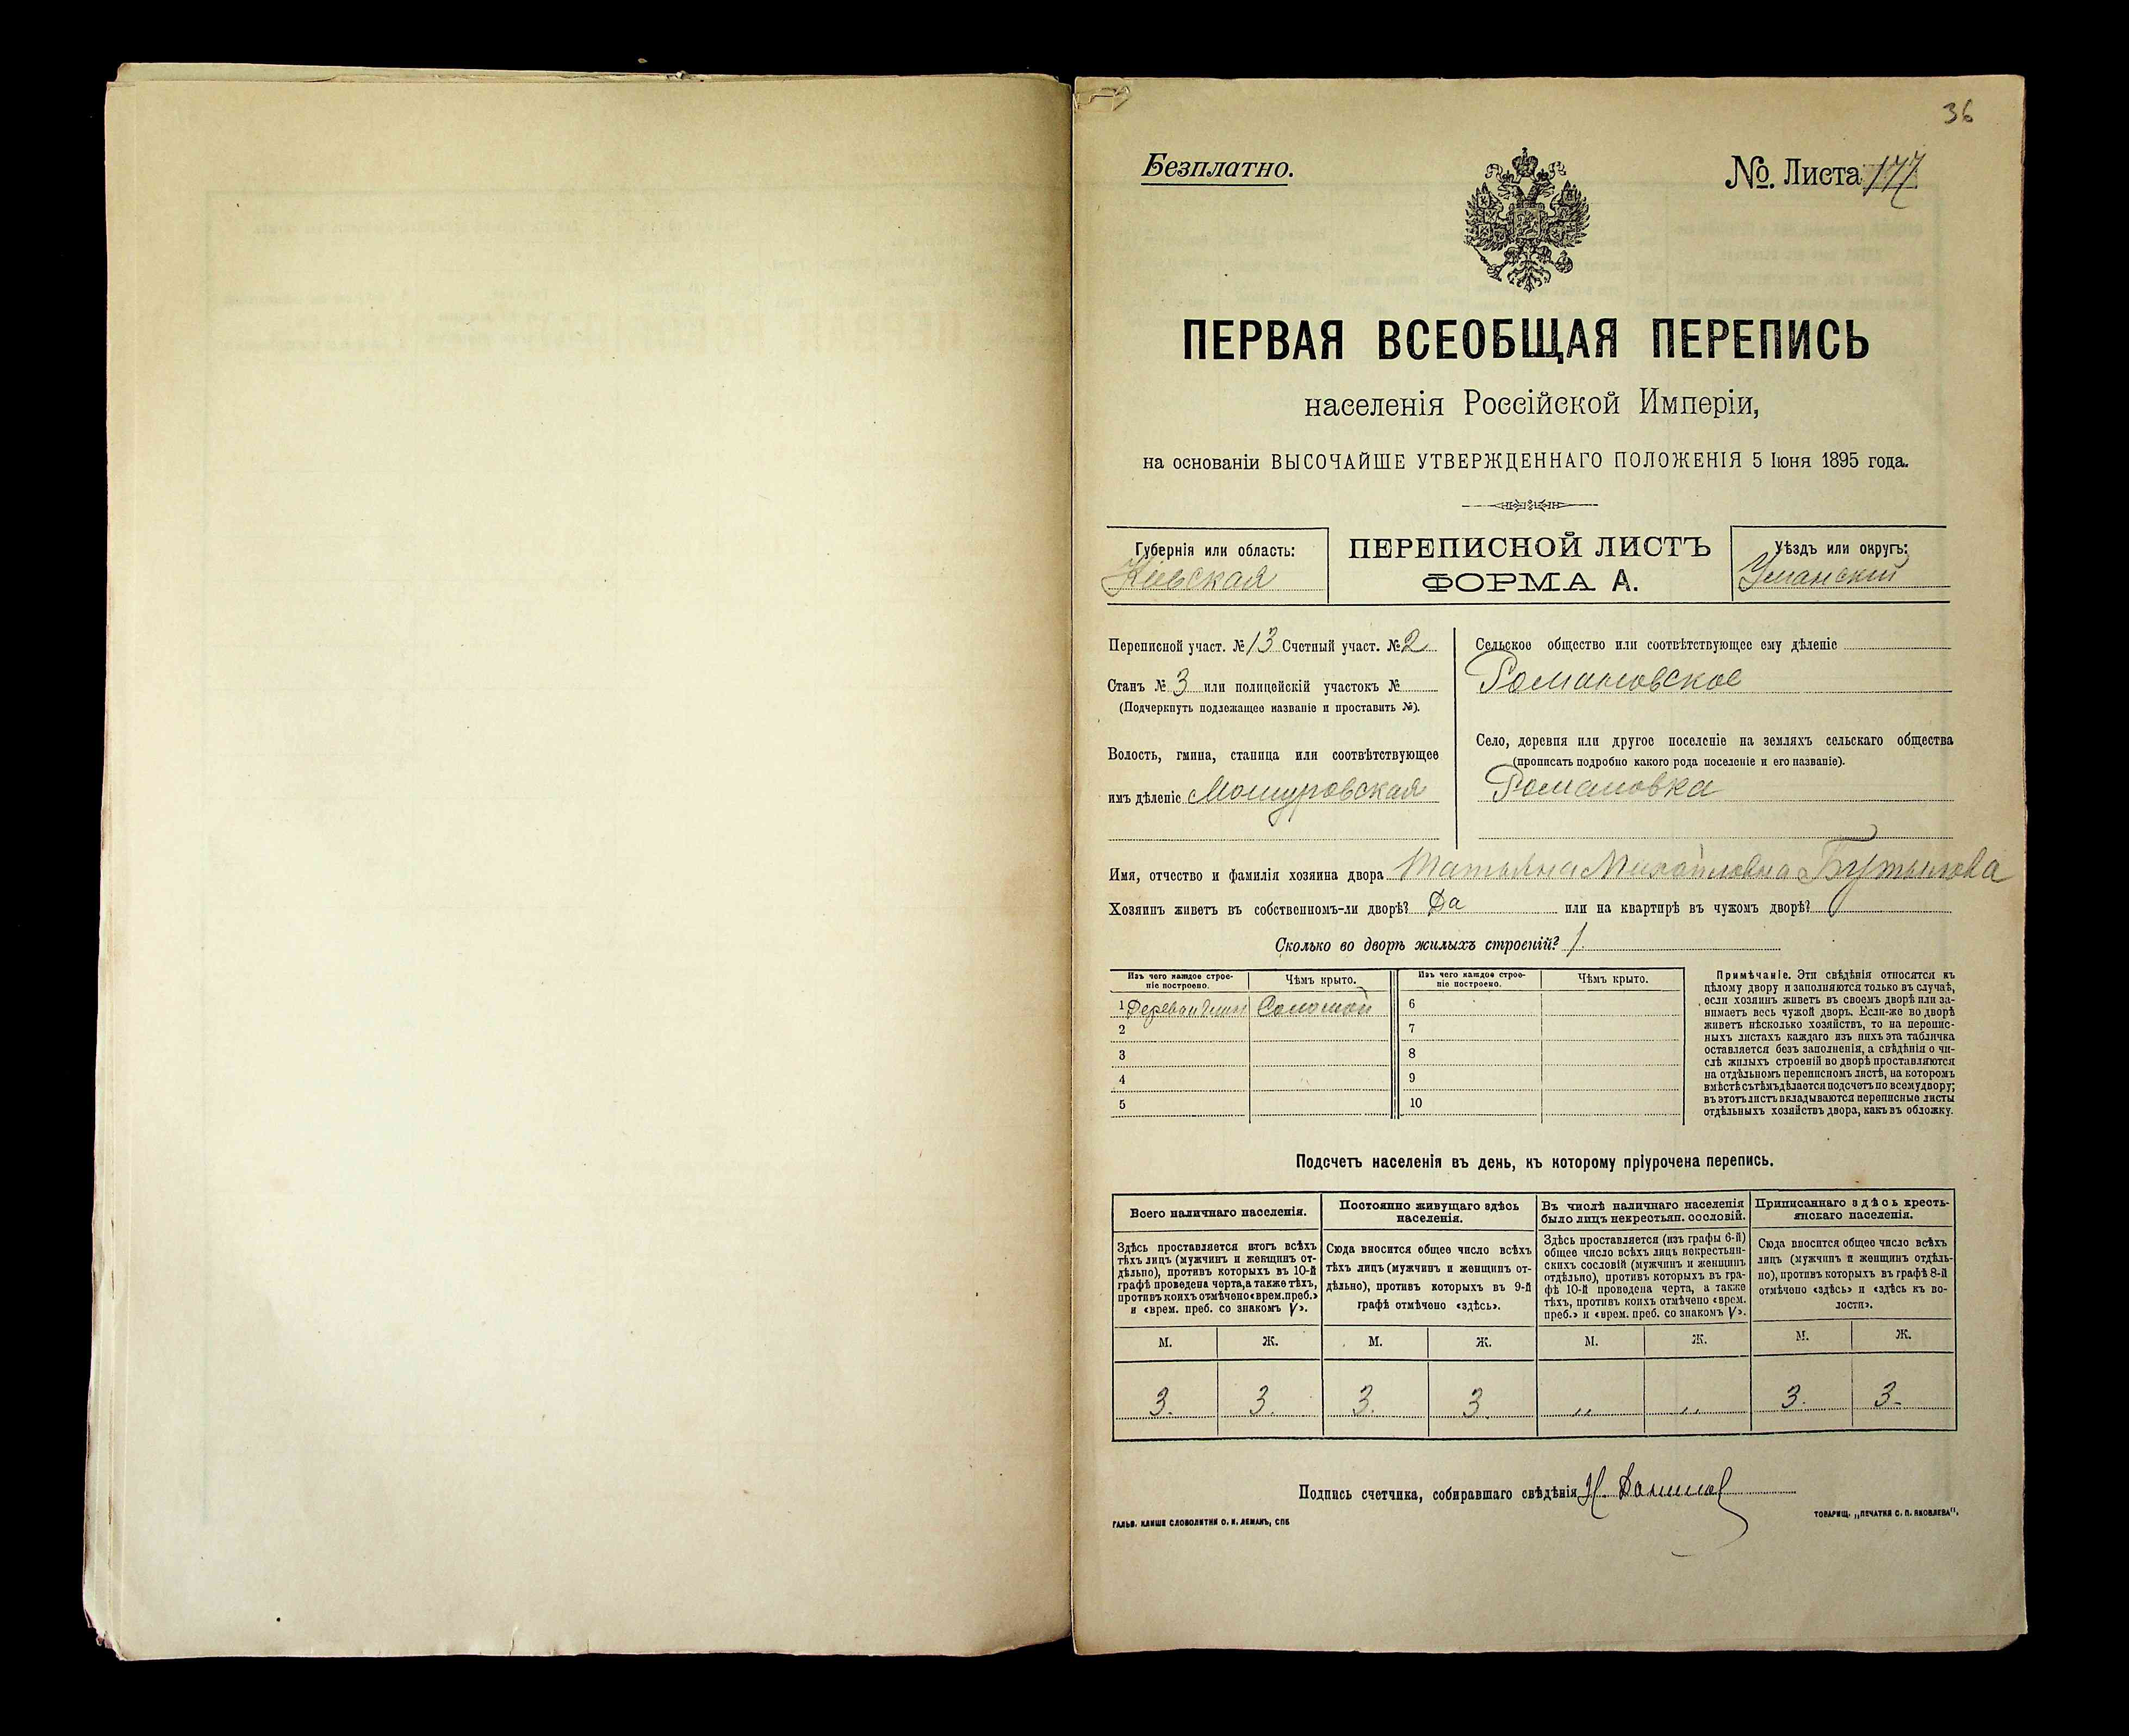 36
Безплатно.
№. Листа 177
ПЕРВАЯ ВСЕОБЩАЯ ПЕРЕПИСЬ
населенія Россійской Имперіи,
на основаніи ВЫСОЧАЙШЕ УТВЕРЖДЕННАГО ПОЛОЖЕНІЯ 5 Іюня 1895 года.
Губернія или область:
Кіевская
ПЕРЕПИСНОЙ ЛИСТЪ
ФОРМА А.
Уѣздъ или округъ:
Уманскій
Переписной участ. № 13 Счетный участ. № 2
Станъ № 3 или полицейскій участокъ №
(Подчеркнуть подлежащее названіе и проставить №).
Волость, гмина, станица или соотвѣтствующее
имъ дѣленіе Мошуровская
Сельское общество или соотвѣтствующее ему дѣленіе
Романовское
Село, деревня или другое поселеніе на земляхъ сельскаго общества
(прописать подробно какого рода поселеніе и его названіе).
Романовка
Имя, отчество и фамилія хозяина двора Татьяна Михайловна
Хозяинъ живетъ въ собственномъ-ли дворѣ? Да или на квартирѣ въ чужомъ дворѣ?
Сколько во дворѣ жилыхъ строеній? 1.
Изъ чего каждое строе-
ніе построено.
Чѣмъ крыто.
Изъ чего каждое строе-
ніе построено.
Чѣмъ крыто.
1 Соломой 6
2 7
3 8
4 9
5 10
Примѣчаніе. Эти свѣдѣнія относятся къ
цѣлому двору и заполняются только въ случаѣ,
если хозяинъ живетъ въ своемъ дворѣ или за-
нимаетъ весь чужой дворъ. Если-же во дворѣ
живетъ нѣсколько хозяйствъ, то на перепис-
ныхъ листахъ каждаго изъ нихъ эта табличка
оставляется безъ заполненія, а свѣдѣнія о чи-
слѣ жилыхъ строеній во дворѣ проставляются
на отдѣльномъ переписномъ листѣ, на которомъ
вмѣстѣ съ тѣмъ дѣлается подсчетъ по всему двору;
въ этотъ листъ вкладываются переписные листы
отдѣльныхъ хозяйствъ двора, какъ въ обложку.
Подсчетъ населенія въ день, къ которому пріурочена перепись.
Всего наличнаго населенія.
Здѣсь проставляется итогъ всѣхъ
тѣхъ лицъ (мужчинъ и женщинъ от-
дѣльно), противъ которыхъ въ 10-й
графѣ проведена черта, а также тѣхъ,
противъ коихъ отмѣчено «врем. преб.»
и «врем. преб. со знакомъ V».
Постоянно живущаго здѣсь
населенія.
Сюда вносится общее число всѣхъ
тѣхъ лицъ (мужчинъ и женщинъ от-
дѣльно), противъ которыхъ въ 9-й
графѣ отмѣчено «здѣсь».
Въ числѣ наличнаго населенія
было лицъ некрестьян. сословій.
Здѣсь проставляется (изъ графы 6-й)
общее число всѣхъ лицъ некрестьян-
скихъ сословій (мужчинъ и женщинъ
отдѣльно), противъ которыхъ въ гра-
фѣ 10-й проведена черта, а также
тѣхъ, противъ коихъ отмѣчено «врем.
преб.» и «врем. преб. со знакомъ V».
Приписаннаго здѣсь кресть-
янскаго населенія.
Сюда вносится общее число всѣхъ
лицъ (мужчинъ и женщинъ отдѣль-
но), противъ которыхъ въ графѣ 8-й
отмѣчено «здѣсь» и «здѣсь къ во-
лости».
М. Ж. М. Ж. М. Ж. М. Ж.
3. 3. 3. 3. „ „ 3. 3.
Подпись счетчика, собиравшаго свѣдѣнія
ГАЛЬВ. КЛИШЕ СЛОВОЛИТНИ О. И. ЛЕМАНЪ, СПБ
ТОВАРИЩ. „ПЕЧАТНЯ С. П. ЯКОВЛЕВА".